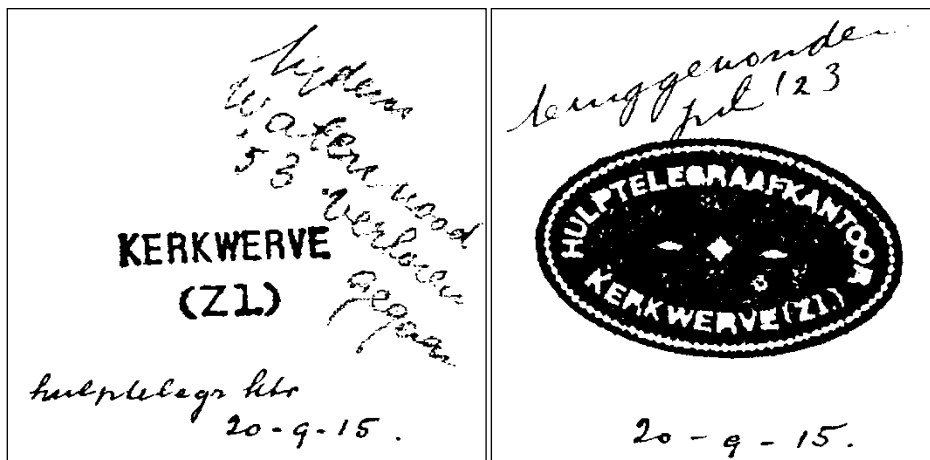 tijdens
Watersnood
'53 verloren
gegaan
KERKWERVE
(Zl.)
hulptelegr ktr
20-9-15.
teruggevonden
juli '23
HULPTELEGRAAFKANTOOR
KERKWERVE (Zl.)
20-9-15.